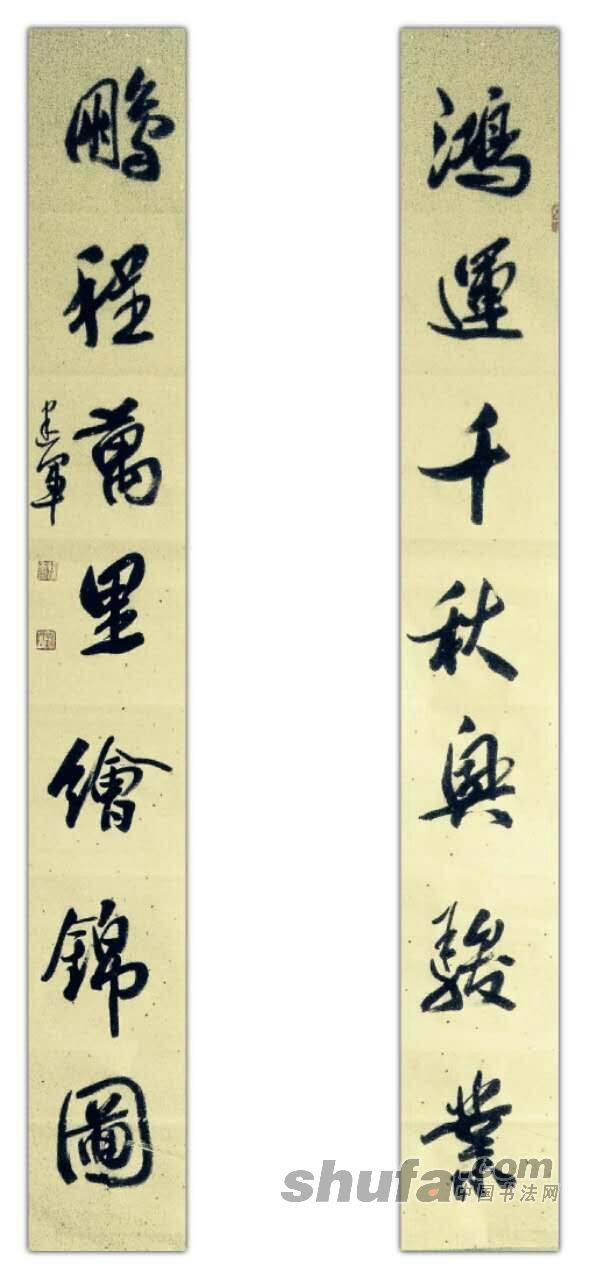 鴻運千秋興駿業
鵬程萬里繪錦圖
建軍
shufa.com
中国书法网